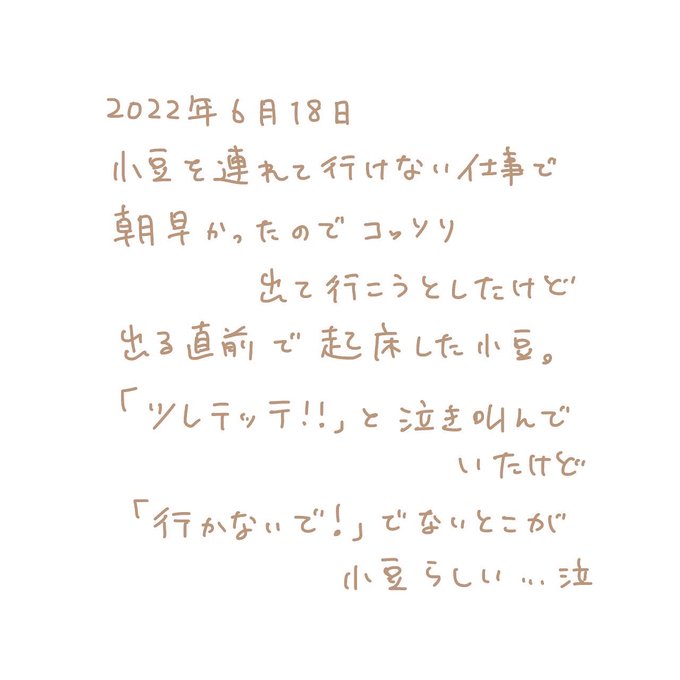 2022年6月18日
小豆を連れて行けない仕事で
朝早かったのでコッソリ
出て行こうとしたけど
出る直前で起床した小豆。
「ツレテッテ!!」と泣き叫んで
いたけど
「行かないで!」でないとこが
小豆らしい...泣